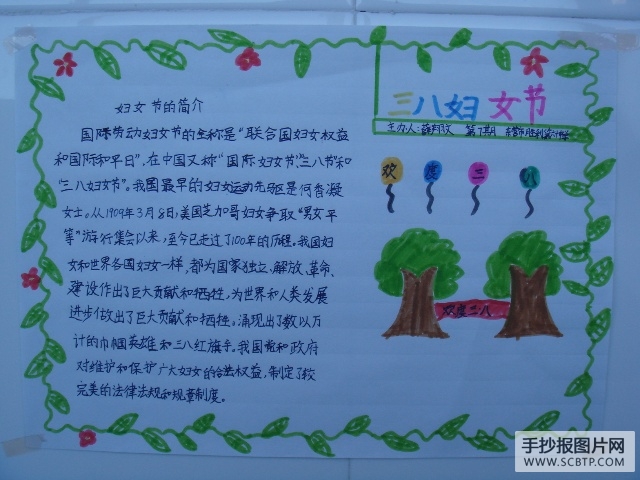 妇女节的简介
国际劳动妇女节的全称是"联合国妇女权益
和国际和平日",在中国又称"国际妇女节""三八节"和
"三八妇女节"。我国最早的妇女运动先驱是何香凝
女士。从1909年3月8日,美国芝加哥妇女争取"男女平
等"游行集会以来,至今已走过了100年的历程。我国妇
女和世界各国妇女一样,都为国家独立、解放、革命、
建设作出了巨大贡献和牺牲,为世界和人类发展
进步做出了巨大贡献和牺牲。涌现出了数以万
计的巾帼英雄和三八红旗手。我国党和政府
对维护和保护广大妇女的合法权益,制定了较
完美的法律法规和规章制度。
三八妇女节
主办人: 第7期
欢度三八
欢度三八
手抄报图片网
WWW.SCBTP.COM